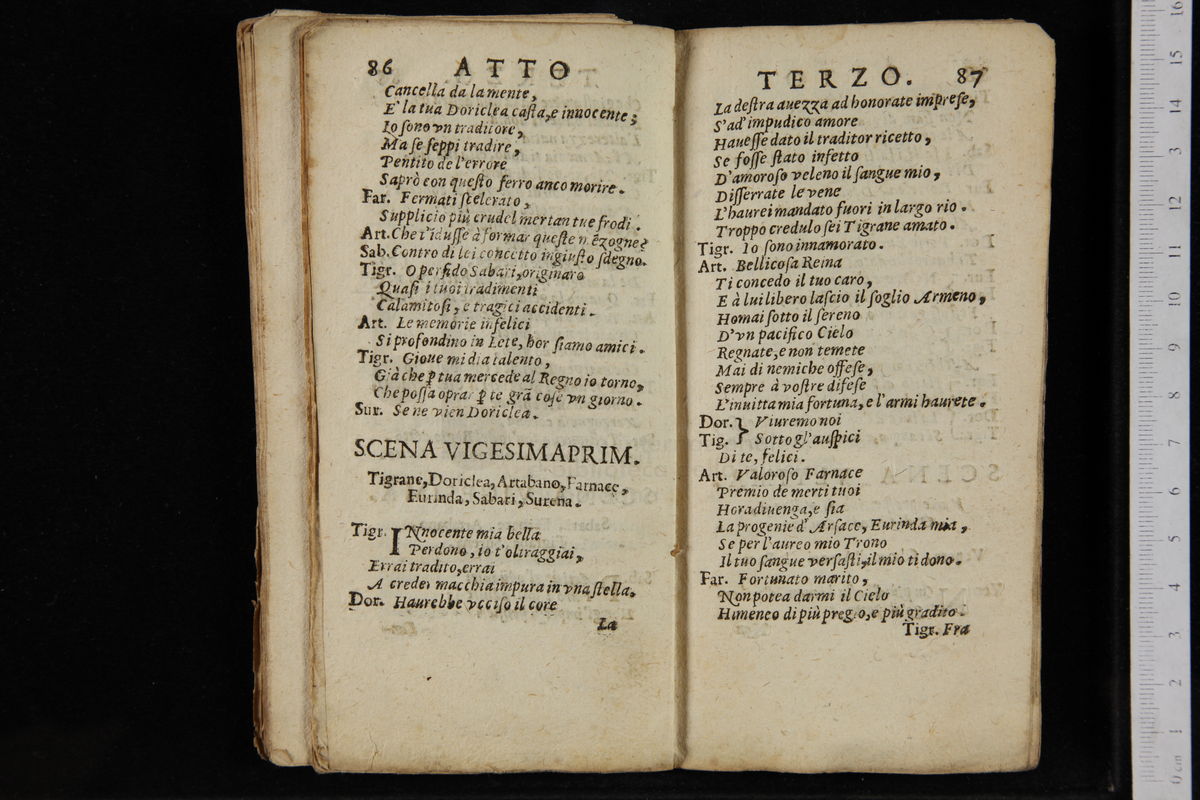 86 ATTO
Cancella da la mente,
E' la tua Doriclea casta,e innocente;
Io sono vn traditore,
Ma se seppi tradire,
Pentito de l'errore
Saprò con questo ferro anco morire.
Far. Fermati scelerato,
Supplicio più crudel mertan tue frodi.
Art. Che t'idusse à formar queste mēzogne?
Sab. Contro di lei concetto ingiusto sdegno.
Tigr. O perfido Sabari, originaro
Quasi i tuoi tradimenti
Calamitosi, e tragici accidenti.
Art. Le memorie infelici
Si profondino in Lete, hor siamo amici.
Tigr. Gioue mi dia talento,
Già che ꝑ tua mercede al Regno io torno,
Che possa oprar ꝑ te grã cose vn giorno.
Sur. Se ne vien Doriclea.
SCENA VIGESIMAPRIM.
Tigrane, Doriclea, Artabano, Farnace,
Eurinda, Sabari, Surena.
Tigr. INnocente mia bella
Perdono, io t'oltraggiai,
Errai tradito, errai
A creder macchia impura in vna stella.
Dor. Haurebbe vcciso il core
La
TERZO. 87
La destra auezza ad honorate imprese,
S'ad' impudico amore
Hauesse dato il traditor ricetto,
Se fosse stato infetto
D'amoroso veleno il sangue mio,
Disserrate le vene
L'haurei mandato fuori in largo rio.
Troppo credulo sei Tigrane amato.
Tigr. Io sono innamorato.
Art. Bellicosa Reina
Ti concedo il tuo caro,
E à lui libero lascio il soglio Armeno,
Homai sotto il sereno
D'vn pacifico Cielo
Regnate,e non temete
Mai di nemiche offese,
Sempre à vostre difese
L'inuitta mia fortuna, e l'armi haurete.
Dor.} Viuremo noi
Tig.} Sotto gl'auspici
Di te, felici.
Art. Valoroso Farnace
Premio de merti tuoi
Hora diuenga,e sia
La progenie d' Arsace, Eurinda mia,
Se per l'aureo mio Trono
Il tuo sangue versasti,il mio ti dono.
Far. Fortunato marito,
Non potea darmi il Cielo
Himeneo di più pregio,e più gradito.
Tigr. Fra